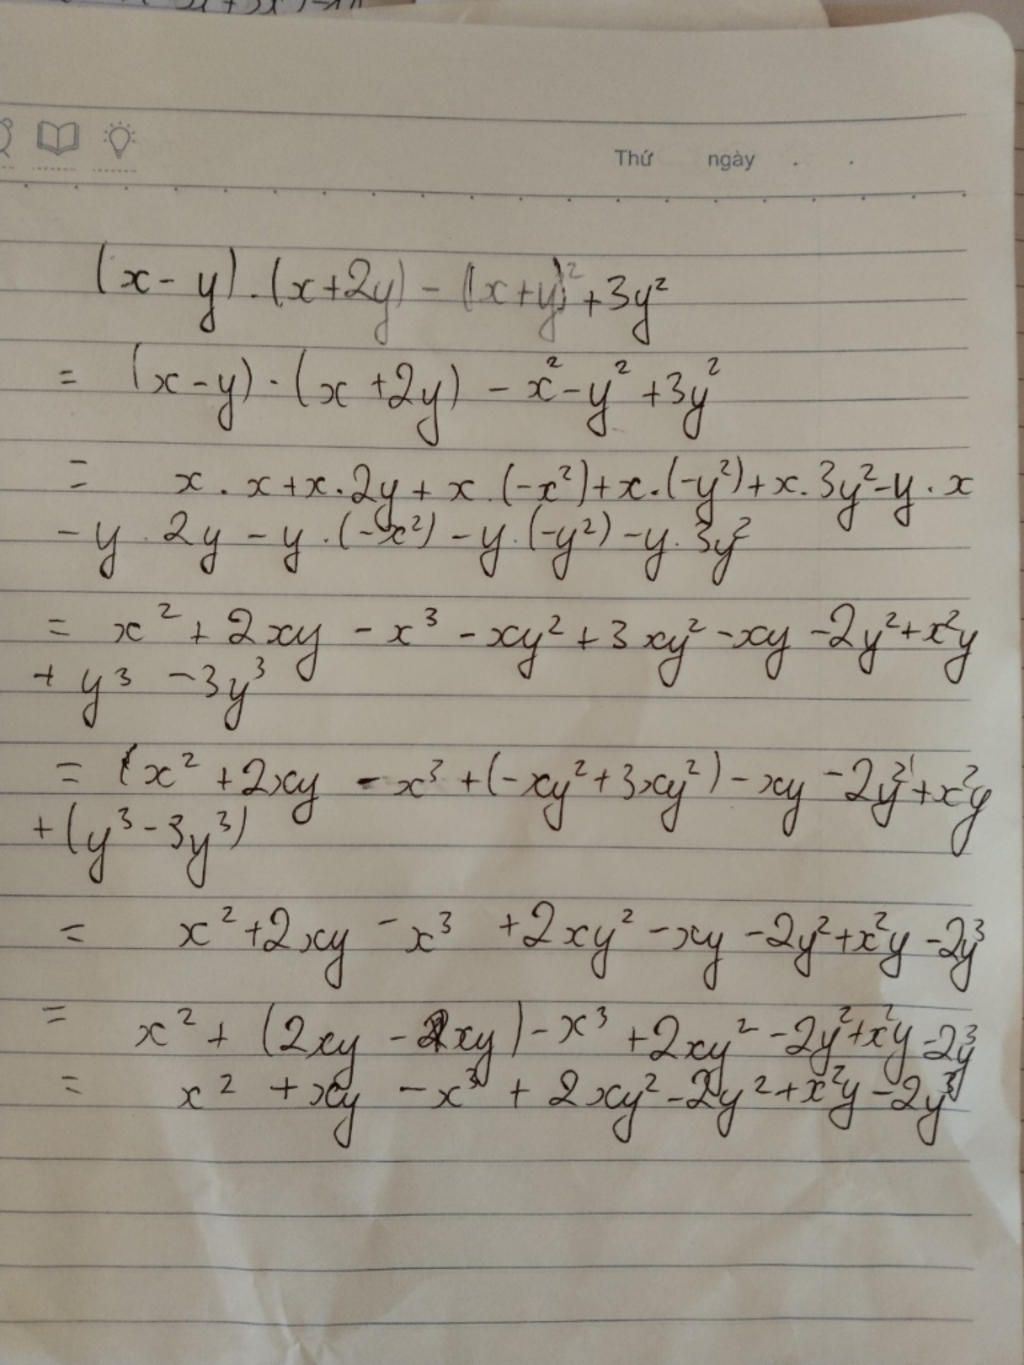 Thứ ngày . .
(x - y) . (x + 2y) - (x + y)² + 3y²
= (x - y) . (x + 2y) - x² - y² + 3y²
= x . x + x . 2y + x . (-x²) + x . (-y²) + x . 3y² - y . x
- y . 2y - y . (-x²) - y . (-y²) - y . 3y²
= x² + 2xy - x³ - xy² + 3xy² - xy - 2y² + x²y
+ y³ - 3y³
= (x² + 2xy - x³ + (-xy² + 3xy²) - xy - 2y² + x²y
+ (y³ - 3y³)
= x² + 2xy - x³ + 2xy² - xy - 2y² + x²y - 2y³
= x² + (2xy - xy) - x³ + 2xy² - 2y² + x²y - 2y³
= x² + xy - x³ + 2xy² - 2y² + x²y - 2y³